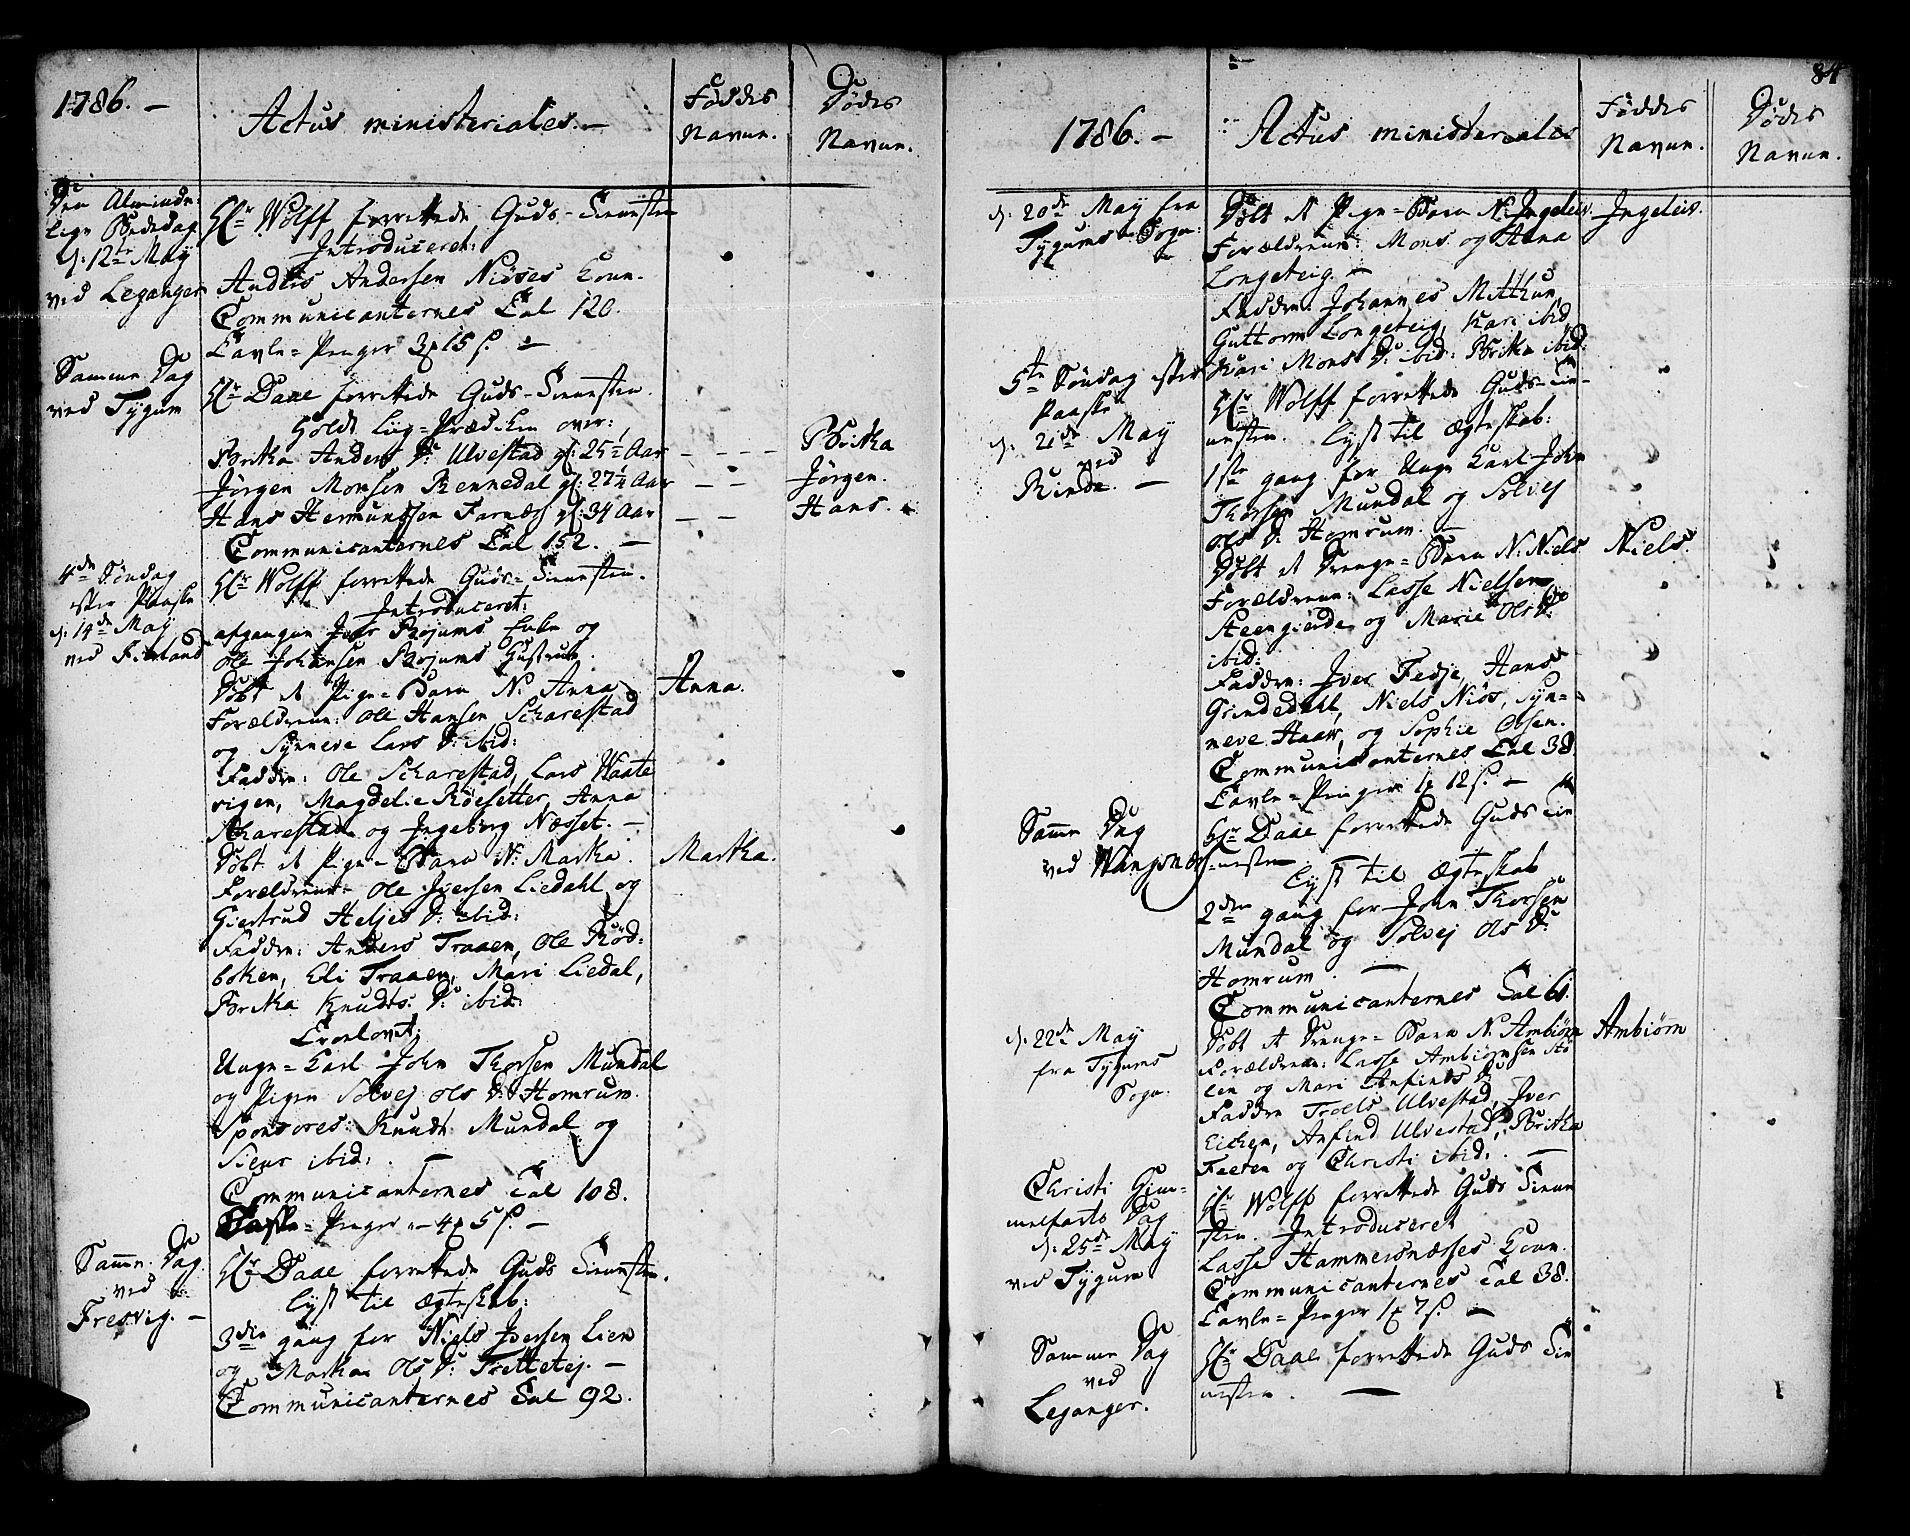 1786. –
Actus ministeriales. –
Føddes
Navne.
Dødes
Navne.
Den Alminde-
lige Bededag
d: 12te May
ved Leganger
Hr Wolff forrettede Guds-Tienesten
Introduceret:
Anders Andersen Niøses Kone.
Communicanternes Tal 120.
Tavle-Penger 3 15 s. –
Samme Dag
ved Tygum
Hr Daae forrettede Guds-Tienesten.
Holdt Liig-Prædiken over:
Britha Anders D: Ulvestad gl: 25½ Aar – – – Britha
Jørgen Monsen Rennedal gl: 27¼ Aar – – Jørgen.
Hans Hermundsen Farnæs gl: 34 Aar – – Hans.
Communicanternes Tal 152. –
4de Søndag
efter Paaske
d: 14de May
ved Fierland
Hr Wolff forrettede Guds-Tienesten.
Introduceret:
afgangne Iver Bøjums Enke og
Ole Johansen Bøjums Hustrue.
Døbt et Pige-Barn N. Anna Anna.
Forældrene: Ole Hansen Scharestad
og Synneve Lars D: ibid:
Faddre: Ole Scharestad, Lars Waate
vigen, Magdelie Røesetter, Anna
Scharestad og Ingeborg Næsset. –
Døbt et Pige-Barn N: Martha. Martha.
Forældrene: Ole Iversen Liedahl og
Giertrud Heljes D: ibid:
Faddre: Anders Traaen, Ole Rød-
boken, Eli Traaen, Mari Liedal,
Britha Knuds: D: ibid:
Trolovet:
Unge-Karl John Thorsen Mundal
og Pigen Solvej Ols D: Homrum.
Sponsores: Knud Mundal og
Siur ibid: . –
Communicanternes Tal 108.
Tavle-Penger – 4 5 s. –
Samme Dag
ved
Fresvig. –
Hr Daae forrettede Guds Tienesten.
Lyst til Ægteskab:
3die gang for Niels Iversen Lien
og Martha Ols D: Trettetej. –
Communicanternes Tal 92.
84
1786. –
Actus ministeriales
Føddes
Navne.
Dødes
Navne.
d: 20de May fra
Tygums Sogn:
Døbt et Pige-Barn N. Ingeleiv. Ingeleiv.
Forældrene: Mons og Anna
Longeteig. –
Faddre: Johannes Mitthun
Guttorm Longeteig, Kari ibid
Kari Mons D: ibid: Britha ibid:
5te Søndag efter
Paaske
d: 21de May
ved
Rinde. –
Hr Wolff forrettede Guds-Tie-
nesten. Lyst til Ægteskab:
1ste gang for Unge Karl John
Thorsen Mundal og Solvej
Ols D: Homrum. –
Døbt et Drenge-Barn N. Niels Niels.
Forældrene: Lasse Nielsen
Steengierde og Marie Ols D:
ibid:
Faddre: Iver Fedje, Hans
Grindedahl, Niels Niøs, Syn-
neve Haaw, og Sophie Olsen.
Communicanternes Tal 38
Tavle-Penger 1 12 s. –
Samme Dag
ved Wangsnæs
Hr Daae forrettede Guds Tie
nesten –
Lyst til Ægteskab
2den gang for John Thorsen
Mundal og Solvej Ols D:
Homrum. –
Communicanternes Tal 61.
d: 22de May
fra Tygums
Sogn.
Døbt et Drenge-Barn N. Ambiørn Ambiørn
Forældrene: Lasse Ambiørnsen Stø
len og Mari Anfinds D:
Faddre Troels Ulvestad, Iver
Eichen, Anfind Ulvestad, Britha
Feeten og Christi ibid: . –
Christi Him-
melfarts Dag
d: 25de May
ved Tygum
Hr Wolff forrettede Guds Tiene
sten. Introduceret
Lasse Hammersnæsses Kone.
Communicanternes Tal 38.
Tavle-Penger 1 7 s. –
Samme Dag
ved
Leganger.
Hr Daae forrettede Guds Tie
nesten. –